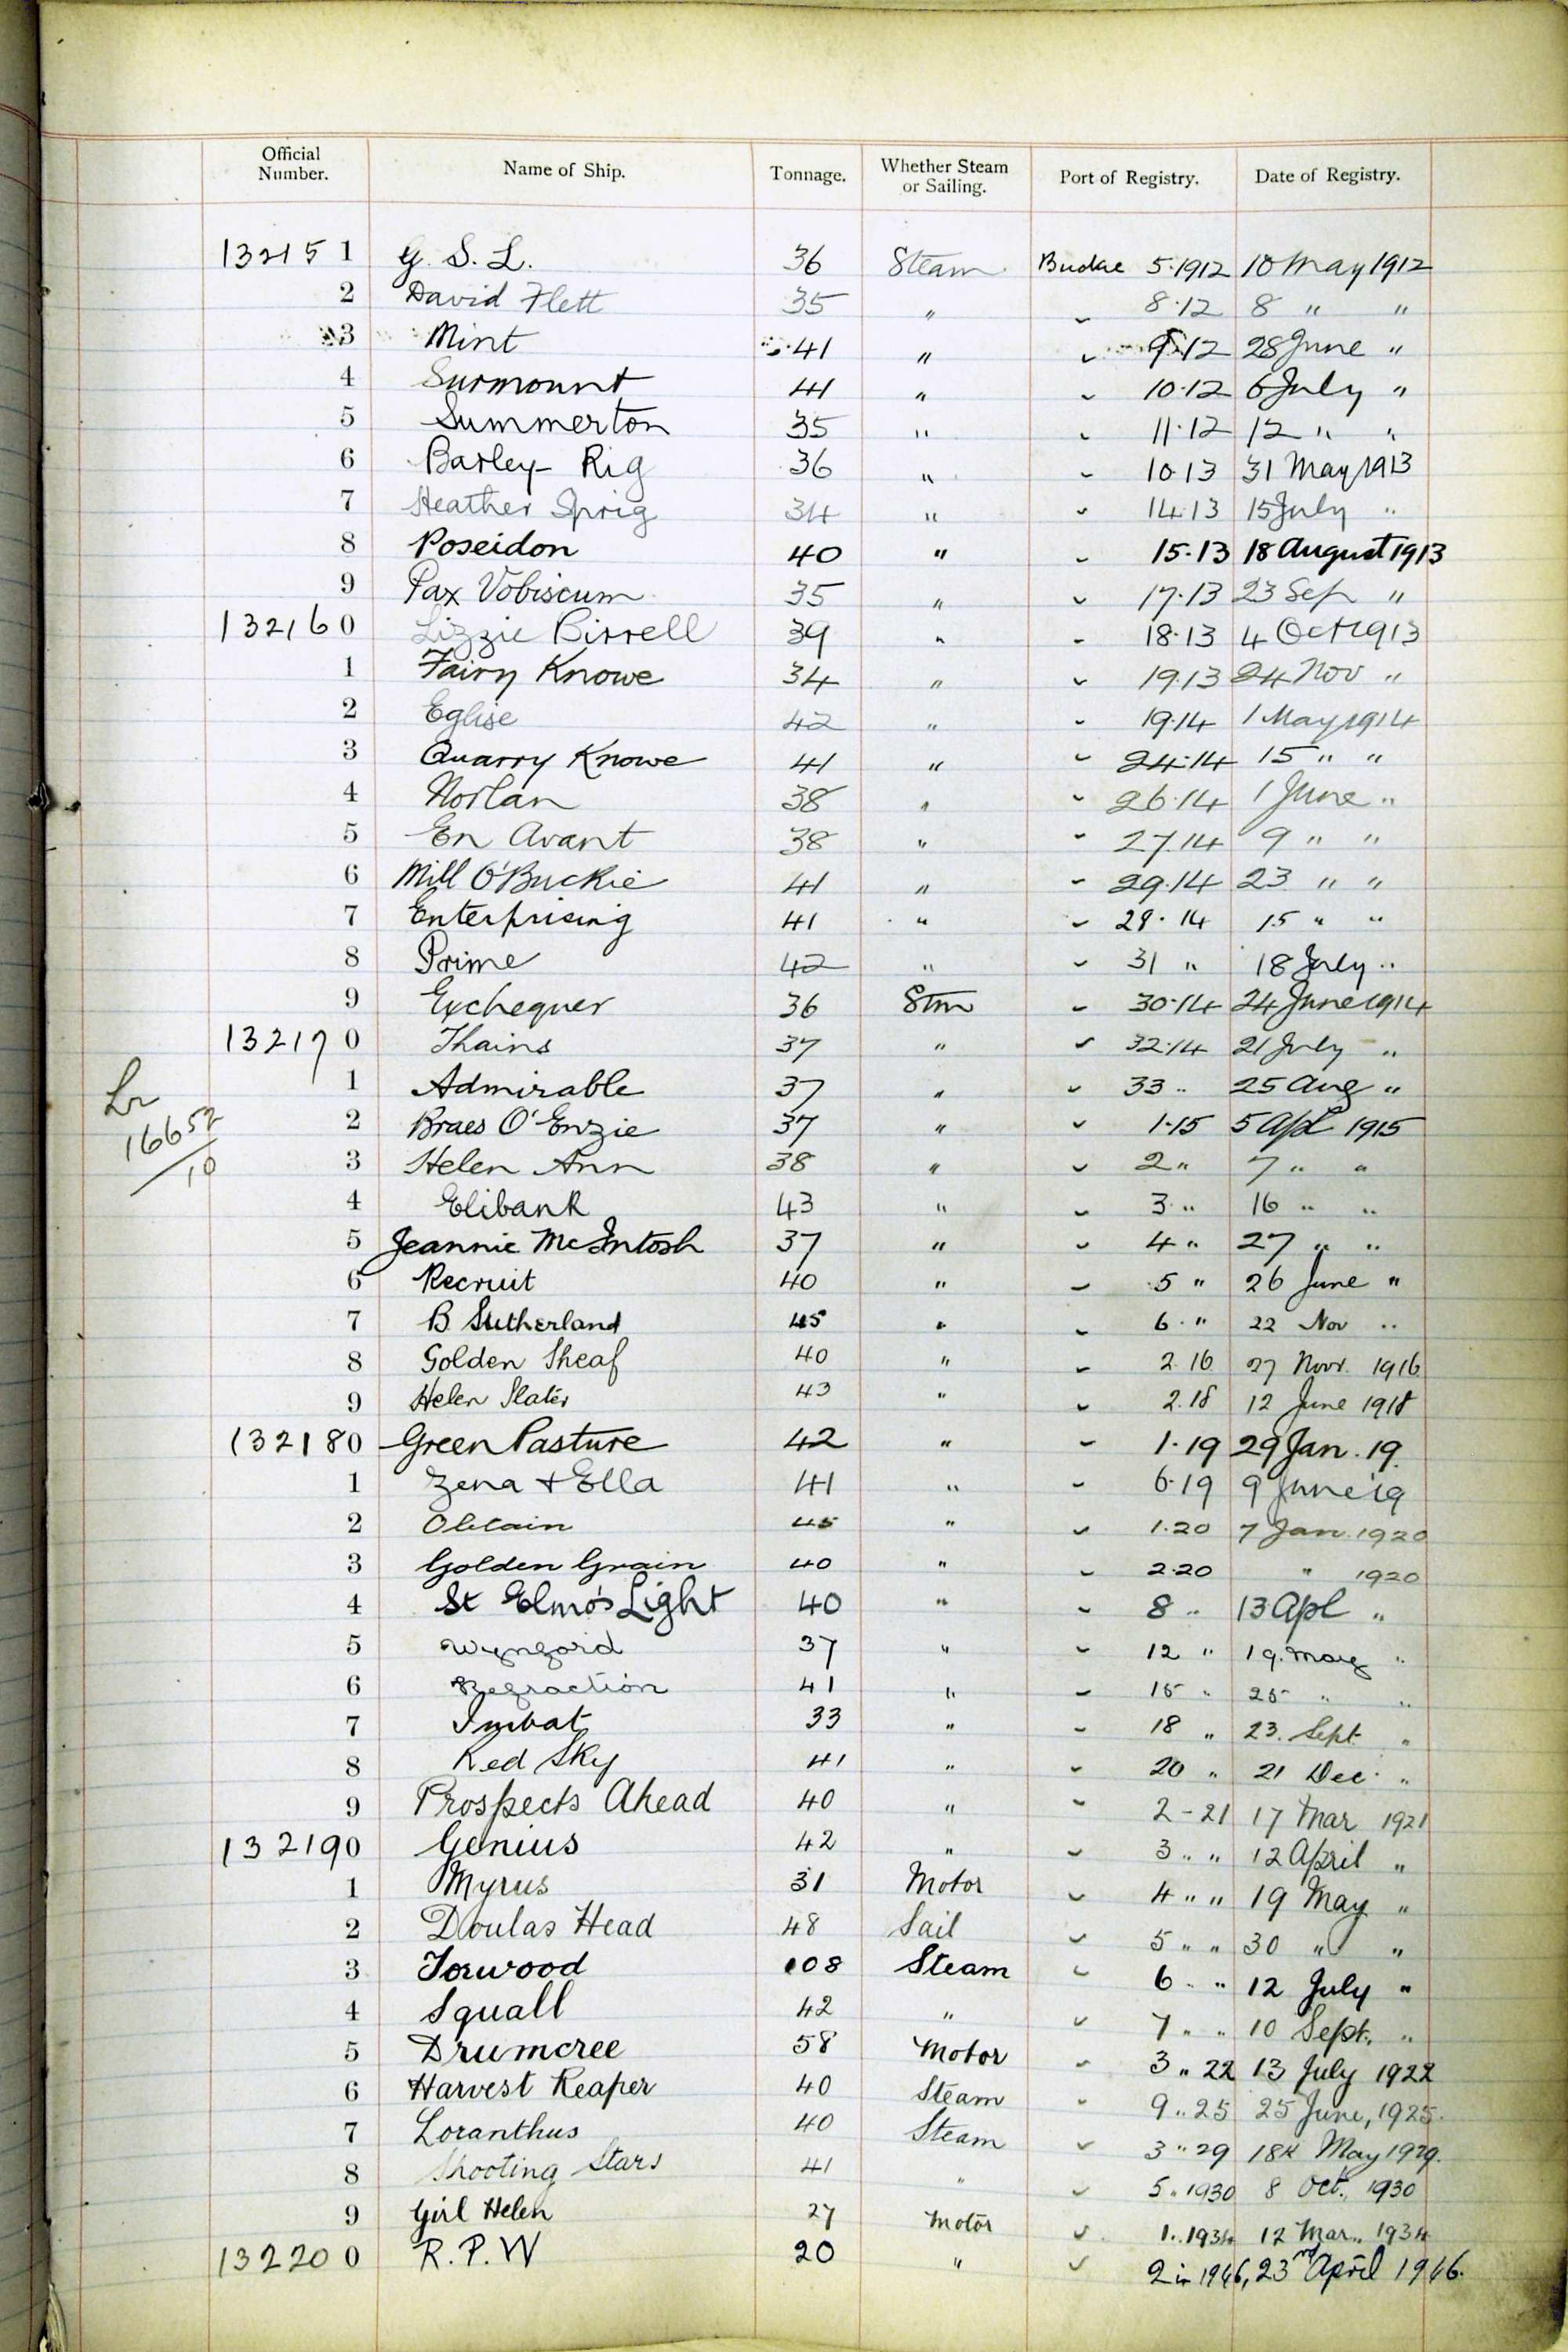 Official Number. Name of Ship. Tonnage. Whether Steam or Sailing. Port of Registry. Date of Registry.
132151 G. S. L. 36 Steam Buckie 5.1912 10 May 1912
2 David Flett 35 " " 8.12 8 " "
3 Mint 41 " " 9.12 28 June "
4 Surmount 41 " " 10.12 6 July "
5 Summerton 35 " " 11.12 12 " "
6 Barley Rig 36 " " 10.13 31 May 1913
7 Heather Sprig 34 " " 14.13 15 July "
8 Poseidon 40 " " 15.13 18 August 1913
9 Pax Vobiscum 35 " " 17.13 23 Sep "
132160 Lizzie Birrell 39 " " 18.13 4 Oct 1913
1 Fairy Knowe 34 " " 19.13 24 Nov "
2 Eglise 42 " " 19.14 1 May 1914
3 Quarry Knowe 41 " " 24.14 15 " "
4 Norlan 38 " " 26.14 1 June "
5 En Avant 38 " " 27.14 9 " "
6 Mill O'Buckie 41 " " 29.14 23 " "
7 Enterprising 41 " " 28.14 15 " "
8 Prime 42 " " 31 " 18 July "
9 Exchequer 36 Stm " 30.14 24 June 1914
132170 Thains 37 " " 32.14 21 July "
1 Admirable 37 " " 33 " 25 Aug "
Lr
16652
/10
2 Braes O'Enzie 37 " " 1.15 5 Apl 1915
3 Helen Ann 38 " " 2 " 7 " "
4 Elibank 43 " " 3 " 16 " "
5 Jeannie McIntosh 37 " " 4 " 27 " "
6 Recruit 40 " " 5 " 26 June "
7 B. Sutherland 45 " " 6 " 22 Nov "
8 Golden Sheaf 40 " " 2.16 27 Novr. 1916
9 Helen Slater 43 " " 2.18 12 June 1918
132180 Green Pasture 42 " " 1.19 29 Jan. 19.
1 Zena + Ella 41 " " 6.19 9 June '19
2 Obtain 45 " " 1.20 7 Jan 1920
3 Golden Grain 40 " " 2.20 " 1920
4 St Elmo's Light 40 " " 8 " 13 Apl "
5 Wyngord 37 " " 12 " 19. May "
6 Refraction 41 " " 15 " 25 " "
7 Imbat 33 " " 18 " 23. Sept "
8 Red Sky 41 " " 20 " 21 Dec. "
9 Prospects Ahead 40 " " 2-21 17 Mar 1921
132190 Genius 42 " " 3 " " 12 April "
1 Myrus 31 Motor " 4 " " 19 May "
2 Doulas Head 48 Sail " 5 " " 30 " "
3 Torwood 108 Steam " 6 " " 12 July "
4 Squall 42 " " 7 " " 10 Sept. "
5 Drumcree 58 Motor " 3 " 22 13 July 1922
6 Harvest Reaper 40 Steam " 9 " 25 25 June, 1925.
7 Loranthus 40 Steam " 3 " 29 18th May 1929.
8 Shooting Stars 41 " " 5 " 1930 8 Oct., 1930
9 Girl Helen 27 Motor " 1 " 1934 12 Mar. 1934
132200 R. P. W 20 " " 2 in 1946, 23rd April 1946.